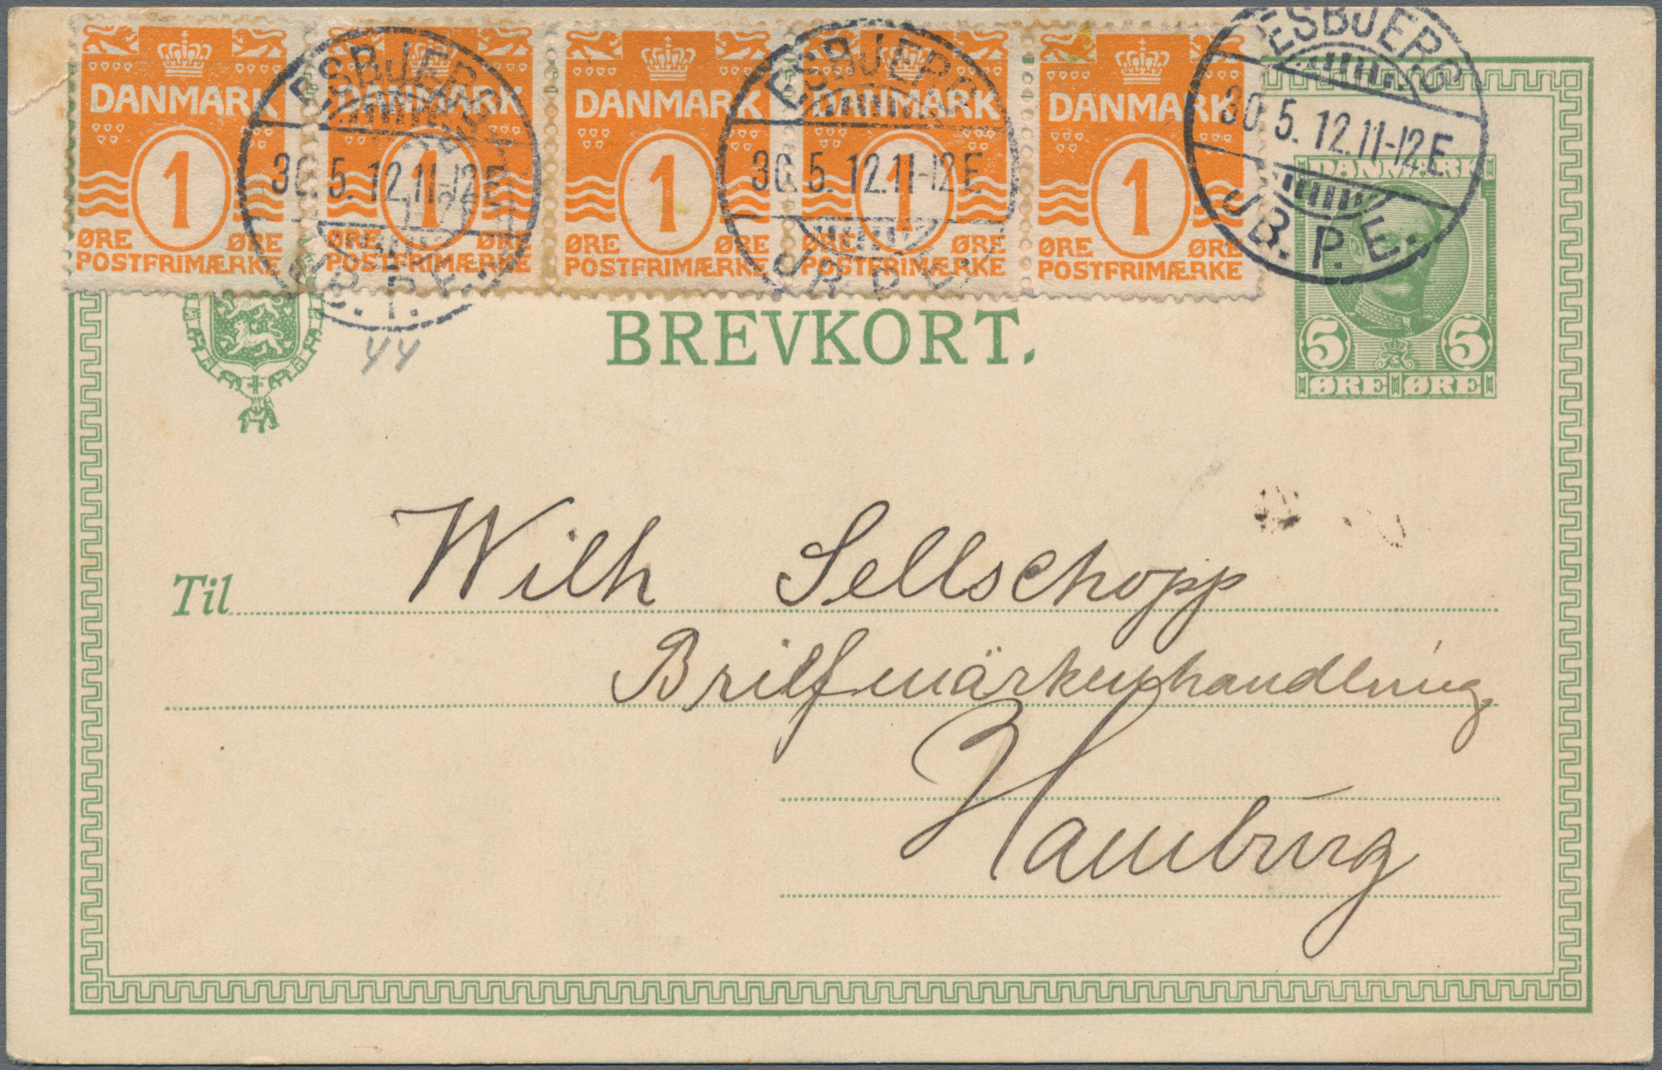 DANMARK DANMARK DANMARK DANMARK DANMARK
1 1 1 1 1
ØRE ØRE ØRE ØRE ØRE ØRE ØRE ØRE ØRE ØRE
POSTFRIMÆRKE POSTFRIMÆRKE POSTFRIMÆRKE POSTFRIMÆRKE POSTFRIMÆRKE
ESBJERG
30.5.12.11-12E
J.B.P.E.
ESBJERG
30.5.12.11-12E
J.B.P.E.
ESBJERG
30.5.12.11-12E
J.B.P.E.
DANMARK
5 5
ØRE ØRE
44
BREVKORT.
Til Wilh Sellschopp
Briefmärkenhandlung
Hamburg